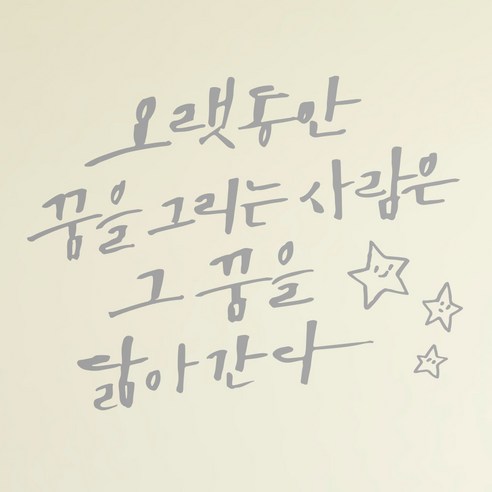 오랫동안
꿈을 그리는 사람은
그 꿈을
닮아간다